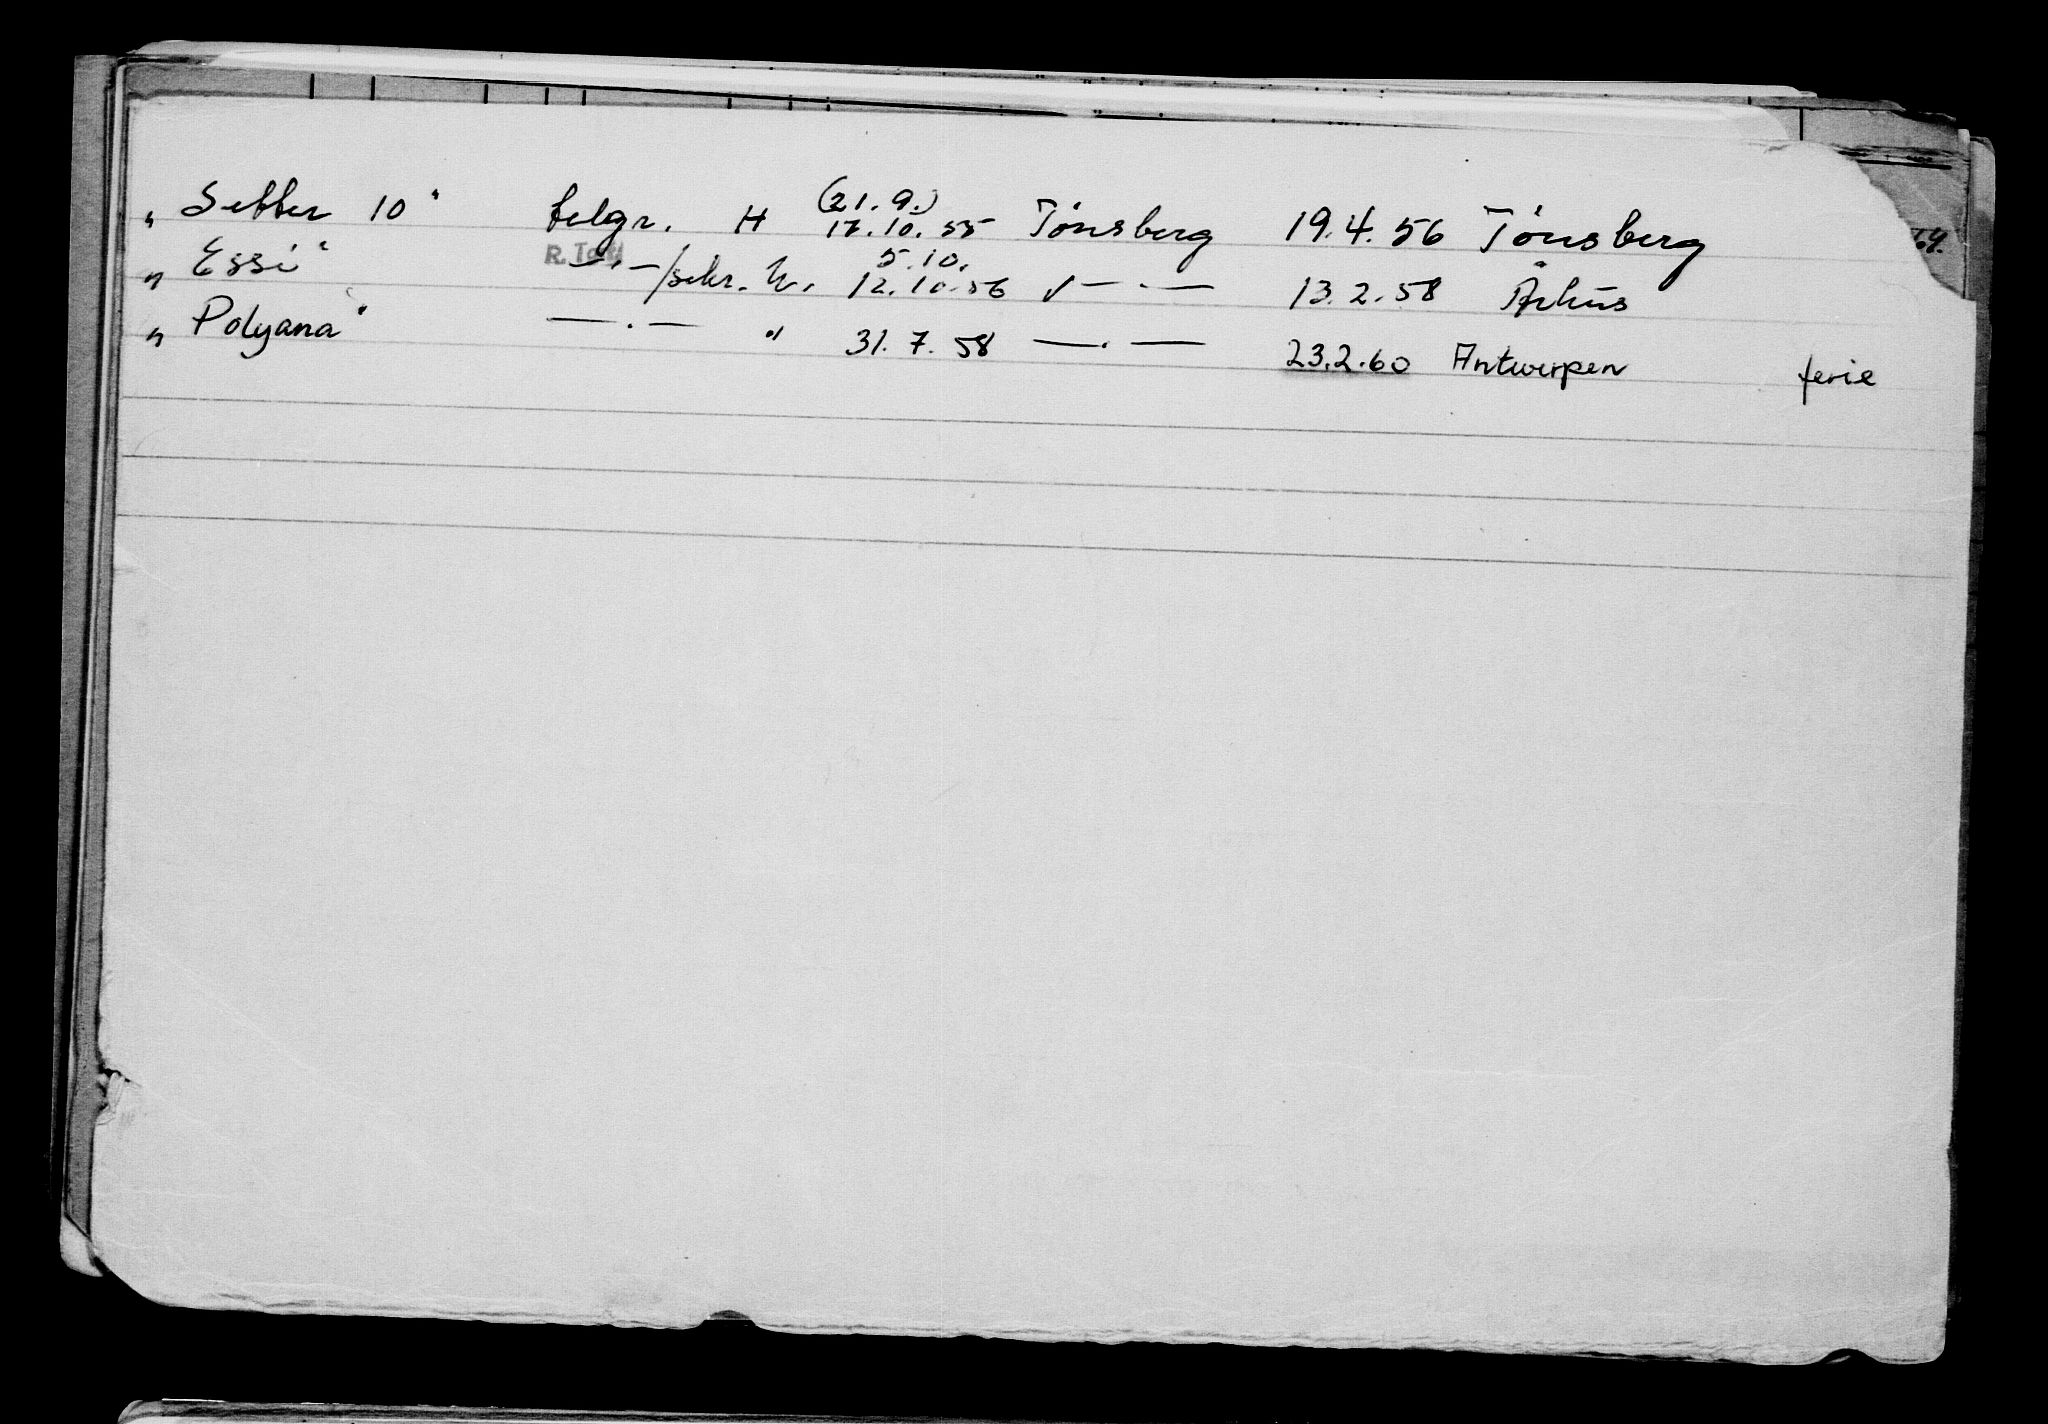 „ Setter 10" telgr. H (21.9.) 17.10.55 Tönsberg 19.4.56 Tönsberg
„ Essi" —.—/sekr. h. 5.10. 12.10.56 —.— 13.2.58 Århus
„ Polyana" —.— " 31.7.58 —.— 23.2.60 Antwerpen ferie